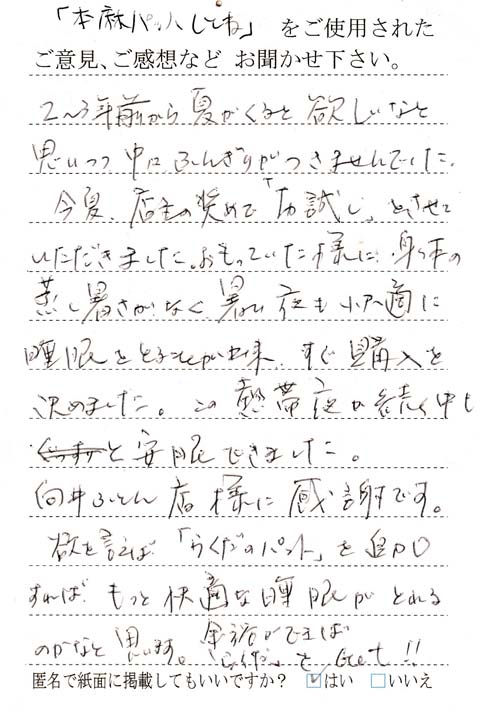 「本麻パットしてね」をご使用された
ご意見、ご感想など お聞かせ下さい。
2～3年前から夏がくると欲しいなと
思いつつ中々ふんぎりがつきませんでした。
今夏、店主の奨めで「お試し」とさせて
いただきました。おもっていた様に、身体の
蒸し暑さがなく暑い夜も快適に
睡眠をとる事が出来、すぐ購入を
決めました。この熱帯夜が続く中も
と安眠できました。
向井ふとん店様に感謝です。
欲を言えば「らくだのパット」を追加
すれば もっと快適な睡眠がとれる
のかなと思います。 余裕ができれば
「らくだ」を Get!!
匿名で紙面に掲載してもいいですか? ☑はい □いいえ